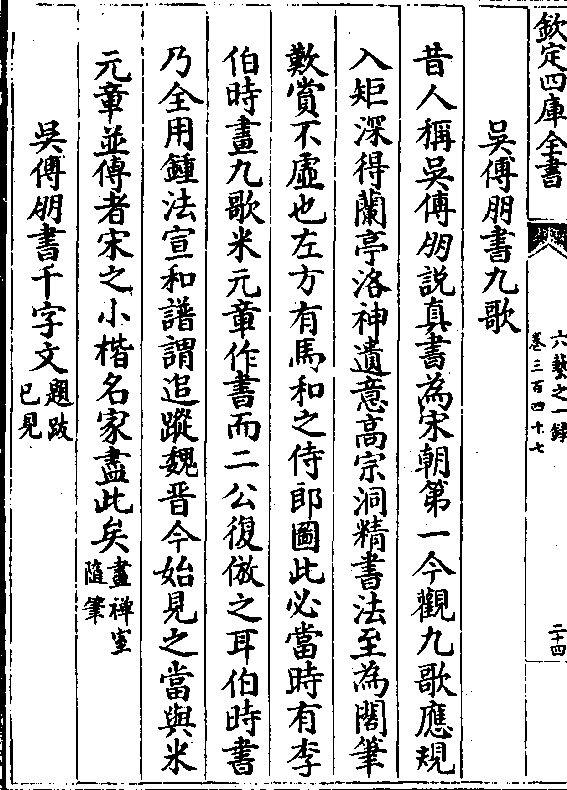 欽定四庫全書
六藝之一録
卷三百四十七
二十四
吳傅朋書九歌
昔人稱吳傅朋説真書為宋朝第一今觀九歌應規
入矩深得蘭亭洛神遺意髙宗洞精書法至為閣筆
歎賞不虛也左方有馬和之侍郎圖此必當時有李
伯時畫九歌米元章作書而二公復倣之耳伯時書
乃全用鍾法宣和譜謂追蹤魏晉今始見之當與米
元章並傳者宋之小楷名家盡此矣畫禪室
隨筆
吳傅朋書千字文題跋
已見